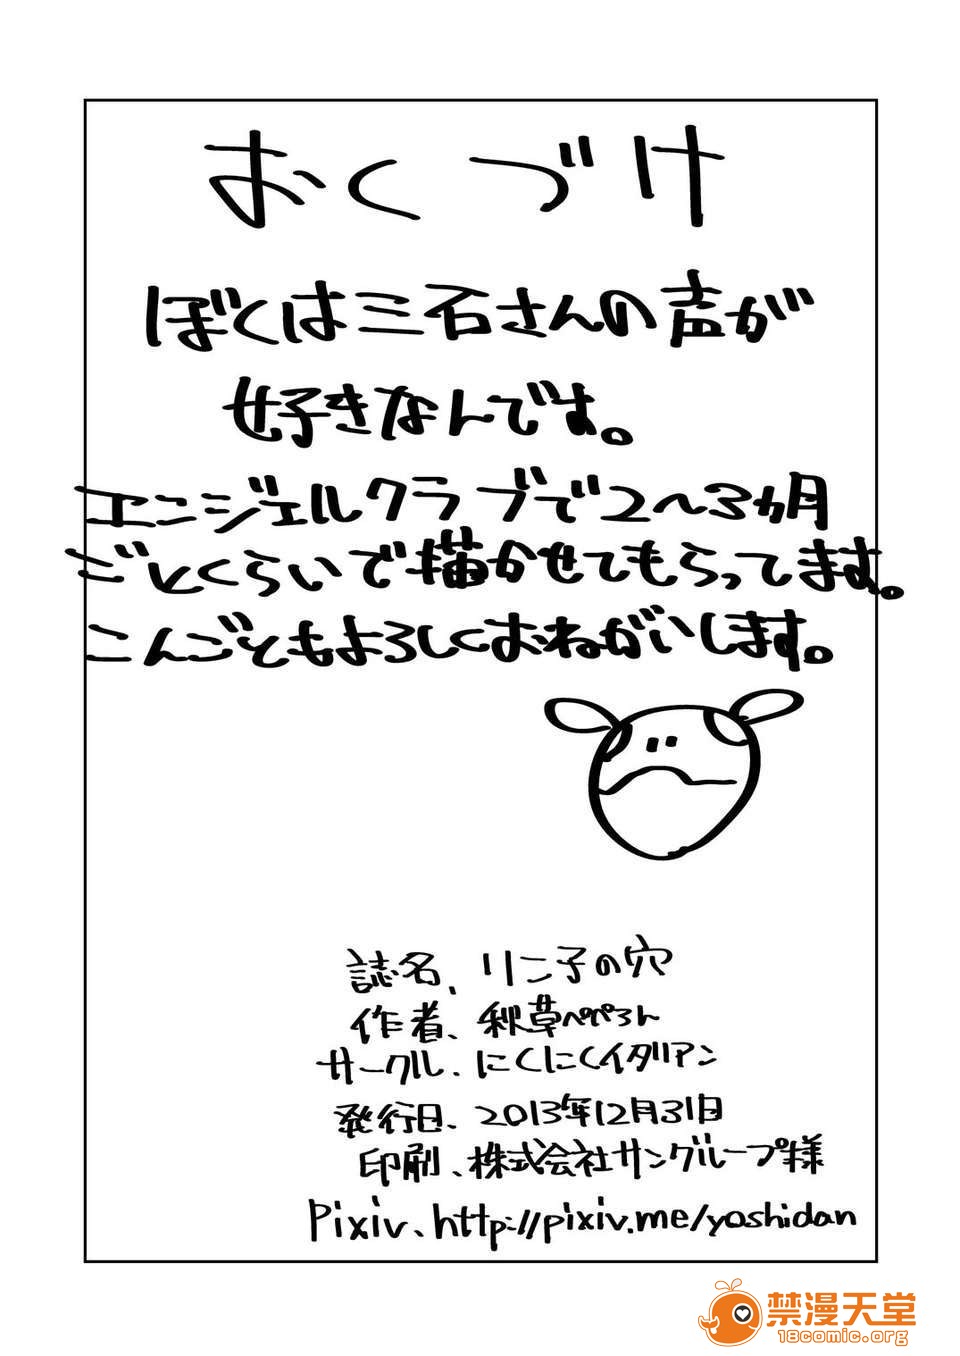 おくづけ
ぼくは三石さんの声が
好きなんです。
エンジェルクラブで2〜3ヵ月
ごとくらいで描かせてもらってます。
こんごともよろしくおねがいします。
誌名、リン子の穴
作者、秋草ぺぺろん
サークル、にくにくイタリアン
発行日、2013年12月31日
印刷、株式会社サングループ様
Pixiv、http://pixiv.me/yoshidan
禁漫天堂
18comic.org